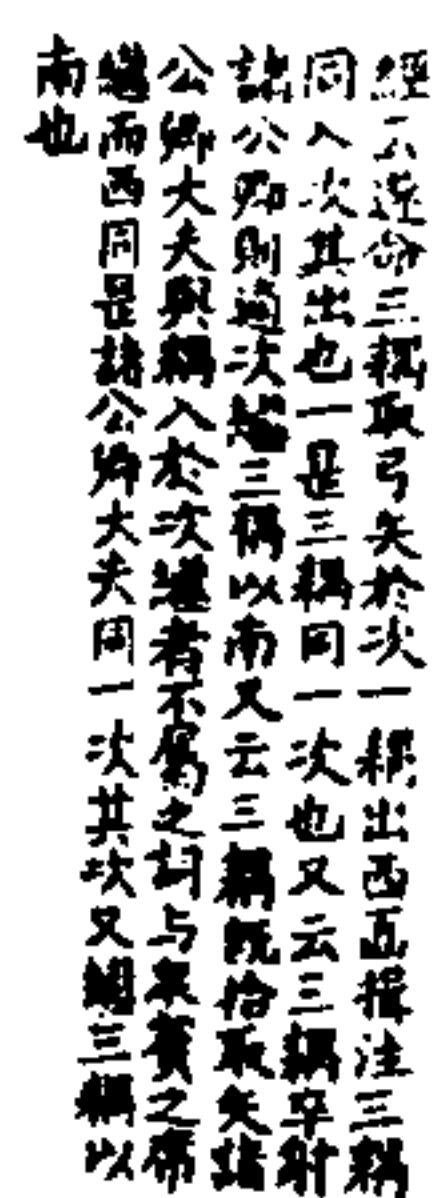 經云遂命三耦取弓矢於次一耦出西面揖注三耦
同入次其出也一是三耦同一次也又云三耦卒射
諸公卿則適次繼三耦以南又云三耦既拾取矢諸
公卿大夫與耦入於次繼者不屬之詞与眾賓之席
繼而西同是諸公卿大夫同一次其次又繼三耦以
南也